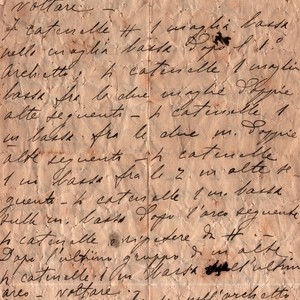 Voltare –
7 catenelle # 1 maglia bassa
nella maglia bassa dopo il 1°
archetto, 4 catenelle 1 maglia
bassa fra le due maglie doppie
alte seguenti – 4 catenelle 1
m bassa fra le due m. doppie
alte seguenti – 4 catenelle
1 m bassa fra le 2 m. alte se
guenti – 4 catenelle 1 m bassa
sulla m. bassa dopo l'arco seguente
4 catenelle ripetere da #.
Dopo l'ultimo gruppo di m. alte
4 catenelle 1 m bassa sull'ultimo
arco – Voltare.